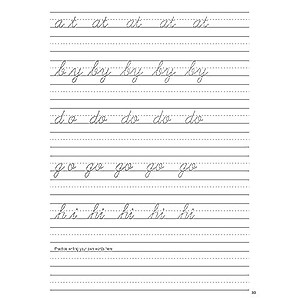 at at at at at
by by by by by
do do do do do
go go go go go
hi hi hi hi hi
Practice writing your own words here: